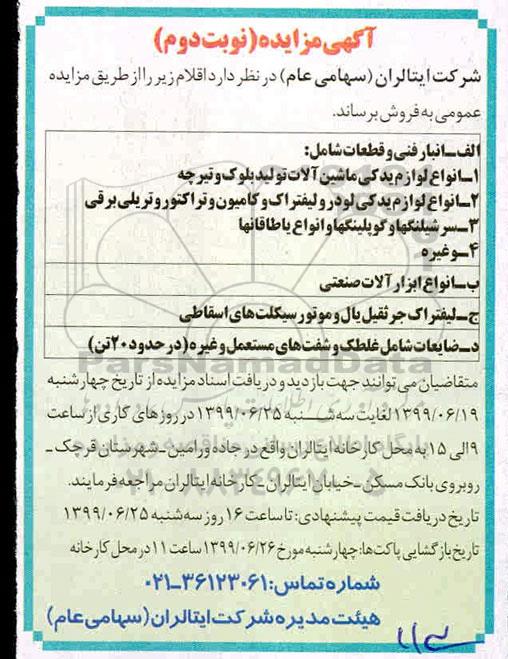 آگهی مزایده (نوبت دوم)
شرکت ایتالران (سهامی عام) در نظر دارد اقلام زیر را از طریق مزایده
عمومی به فروش برساند.
الف-انبار فنی و قطعات شامل:
۱-انواع لوازم یدکی ماشین آلات تولید بلوک و تیرچه
۲-انواع لوازم یدکی لودر و لیفتراک و کامیون و تراکتور و تریلی برقی
۳-سرشیلنگها و کوپلینگها و انواع یاطاقانها
۴-وغیره
ب-انواع ابزارآلات صنعتی
ج-لیفتراک جرثقیل یال و موتورسیکلت های اسقاطی
د-ضایعات شامل غلطک و شفت های مستعمل و غیره (در حدود ۲۰ تن)
متقاضیان می توانند جهت بازدید و دریافت اسناد مزایده از تاریخ چهارشنبه
۱۳۹۹/۰۶/۱۹ لغایت سه شنبه ۱۳۹۹/۰۶/۲۵ در روزهای کاری از ساعت
۹ الی ۱۵ به محل کارخانه ایتالران واقع در جاده ورامین-شهرستان قرچک-
روبروی بانک مسکن-خیابان ایتالران-کارخانه ایتالران مراجعه فرمایند.
تاریخ دریافت قیمت پیشنهادی: تا ساعت ۱۶ روز سه شنبه ۱۳۹۹/۰۶/۲۵
تاریخ بازگشایی پاکت ها: چهارشنبه مورخ ۱۳۹۹/۰۶/۲۶ ساعت ۱۱ در محل کارخانه
شماره تماس: ۰۲۱-۳۶۱۲۳۰۶۱
هیئت مدیره شرکت ایتالران (سهامی عام)
ParsNamadData
۰۲۱-۸۸۳۴۹۶۷۰-۵